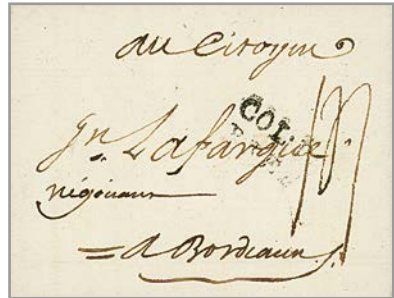 au Citoyen
COL.
Jn. Lafargue.
négociant
= a Bordeaux.